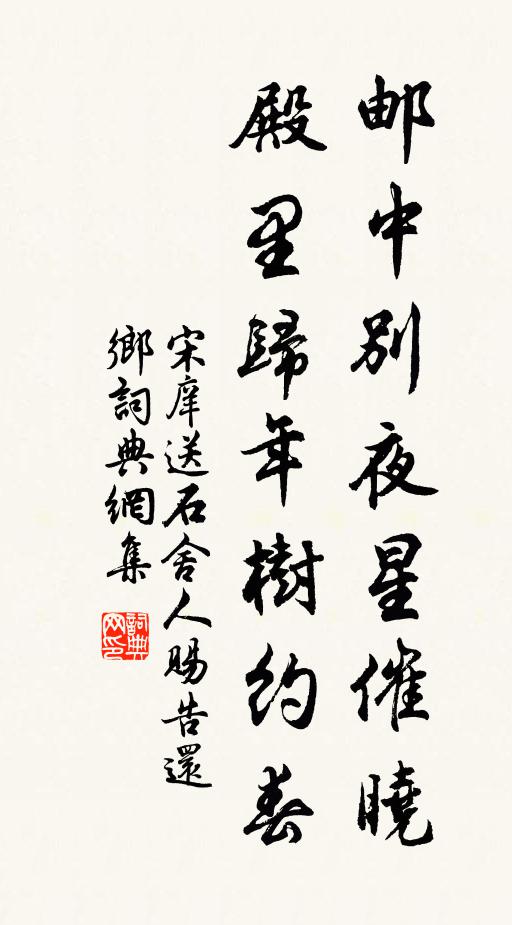 邮中别夜星催曉
殿里歸年樹約春
宋庠送石舍人賜告還
鄉詞典網集
詞典
网印